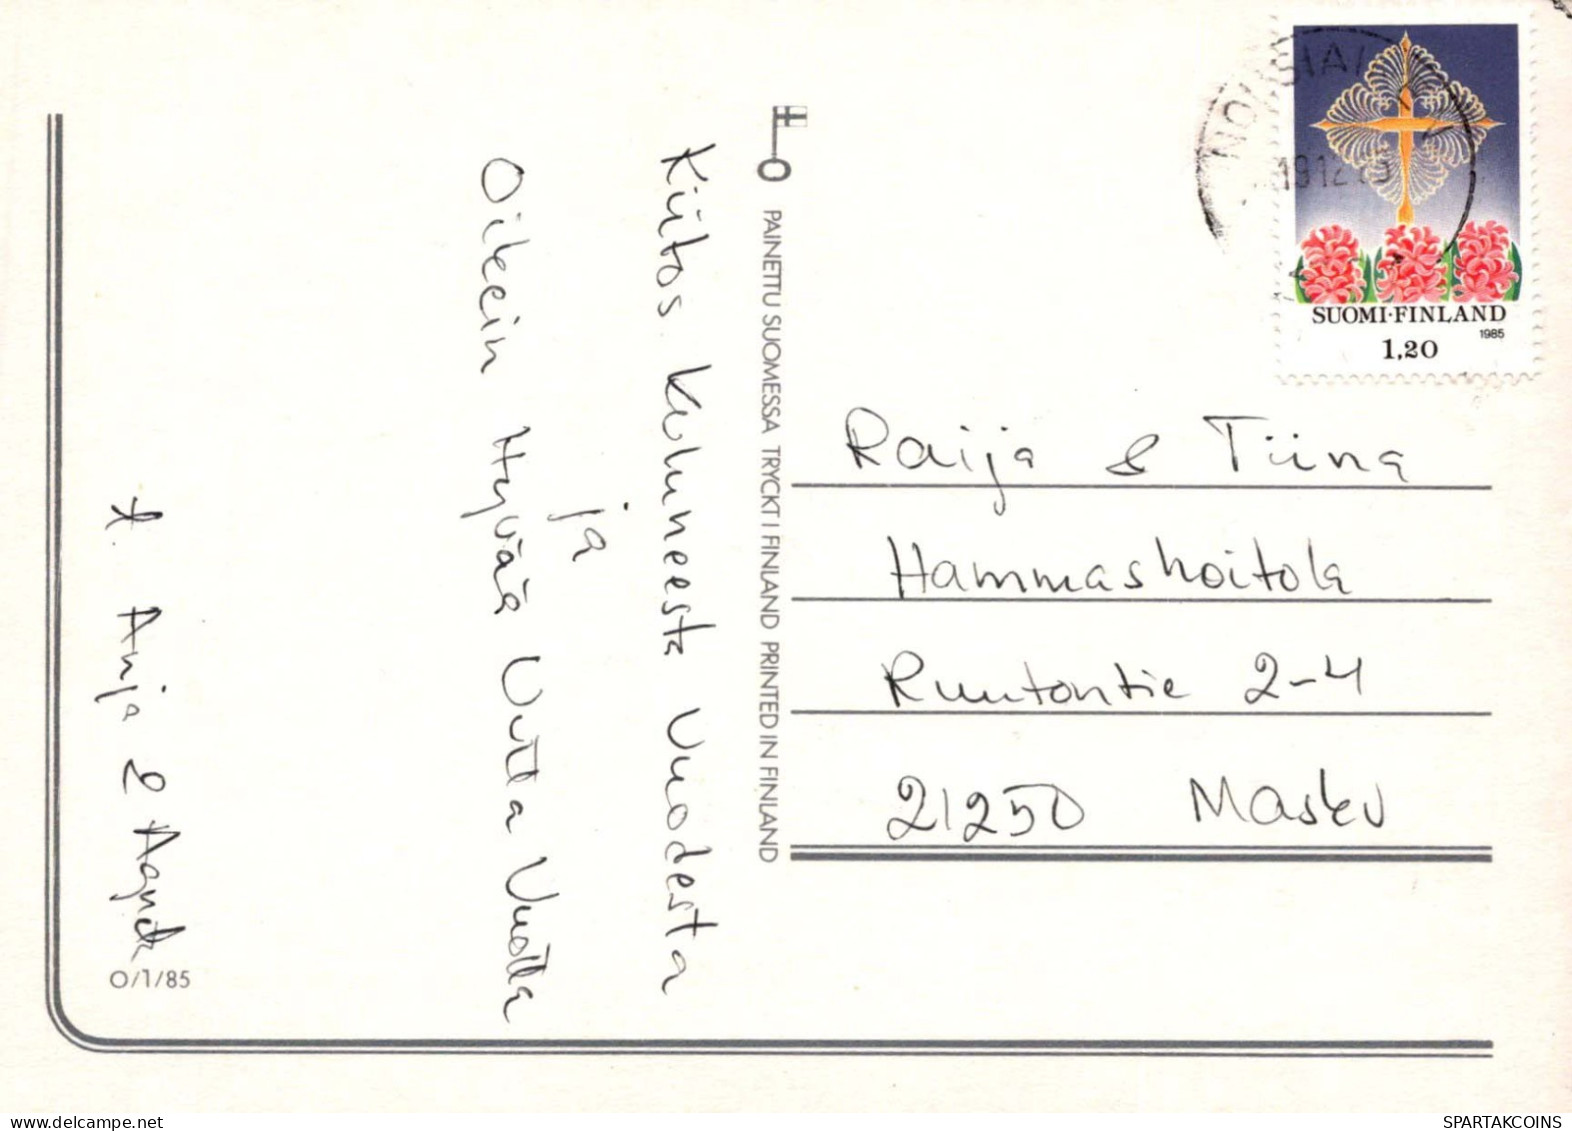 Kiitos Kuluneesta Vuodesta
ja
Oikein Hyvää Uutta Vuotta
t. Anja & Agneta
O/1/85
PAINETTU SUOMESSA TRYCKT I FINLAND PRINTED IN FINLAND
19.12.85
SUOMI·FINLAND
1985
1,20
Raija & Tiina
Hammashoitola
Ruutontie 2-4
21250 Masku
SPARTAKCOINS